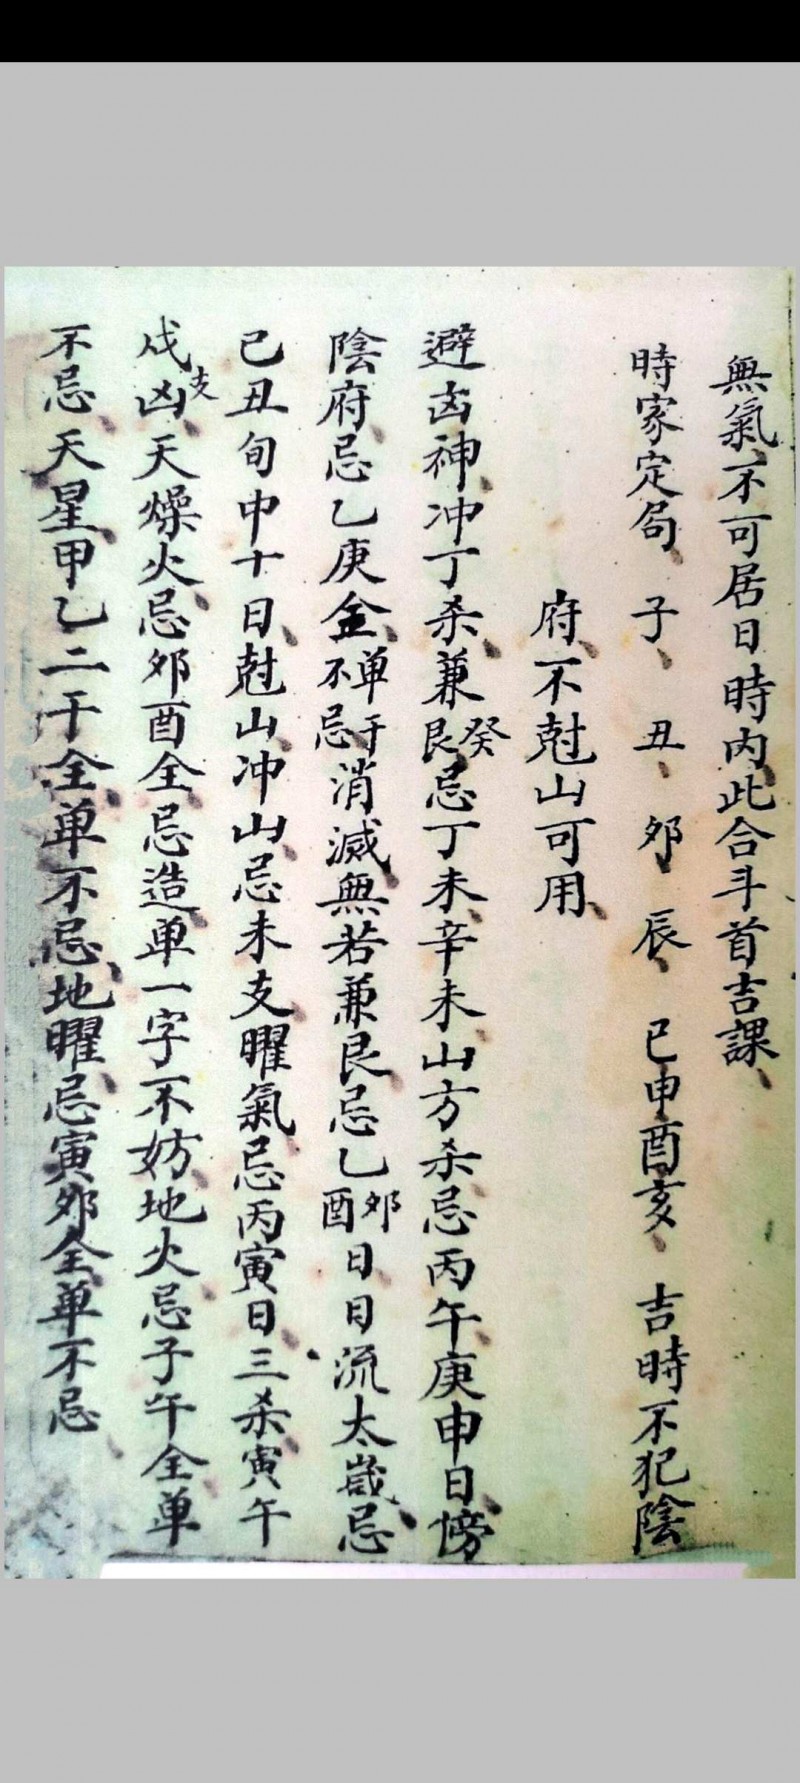 無氣不可居日時內此合斗首吉課
時家定局子丑卯辰巳申酉亥吉時不犯陰
府不尅山可用
避凶神冲丁杀兼艮癸忌丁未辛未山方杀忌丙午庚申日傍
陰府忌乙庚金不忌单干消滅無若兼艮忌乙酉卯日日流太歲忌
己丑旬中十日尅山冲山忌未支曜氣忌丙寅日三杀寅午
戍支凶天燥火忌卯酉全忌造单一字不妨地火忌子午全单
不忌天星甲乙二干全单不忌地曜忌寅卯全单不忌